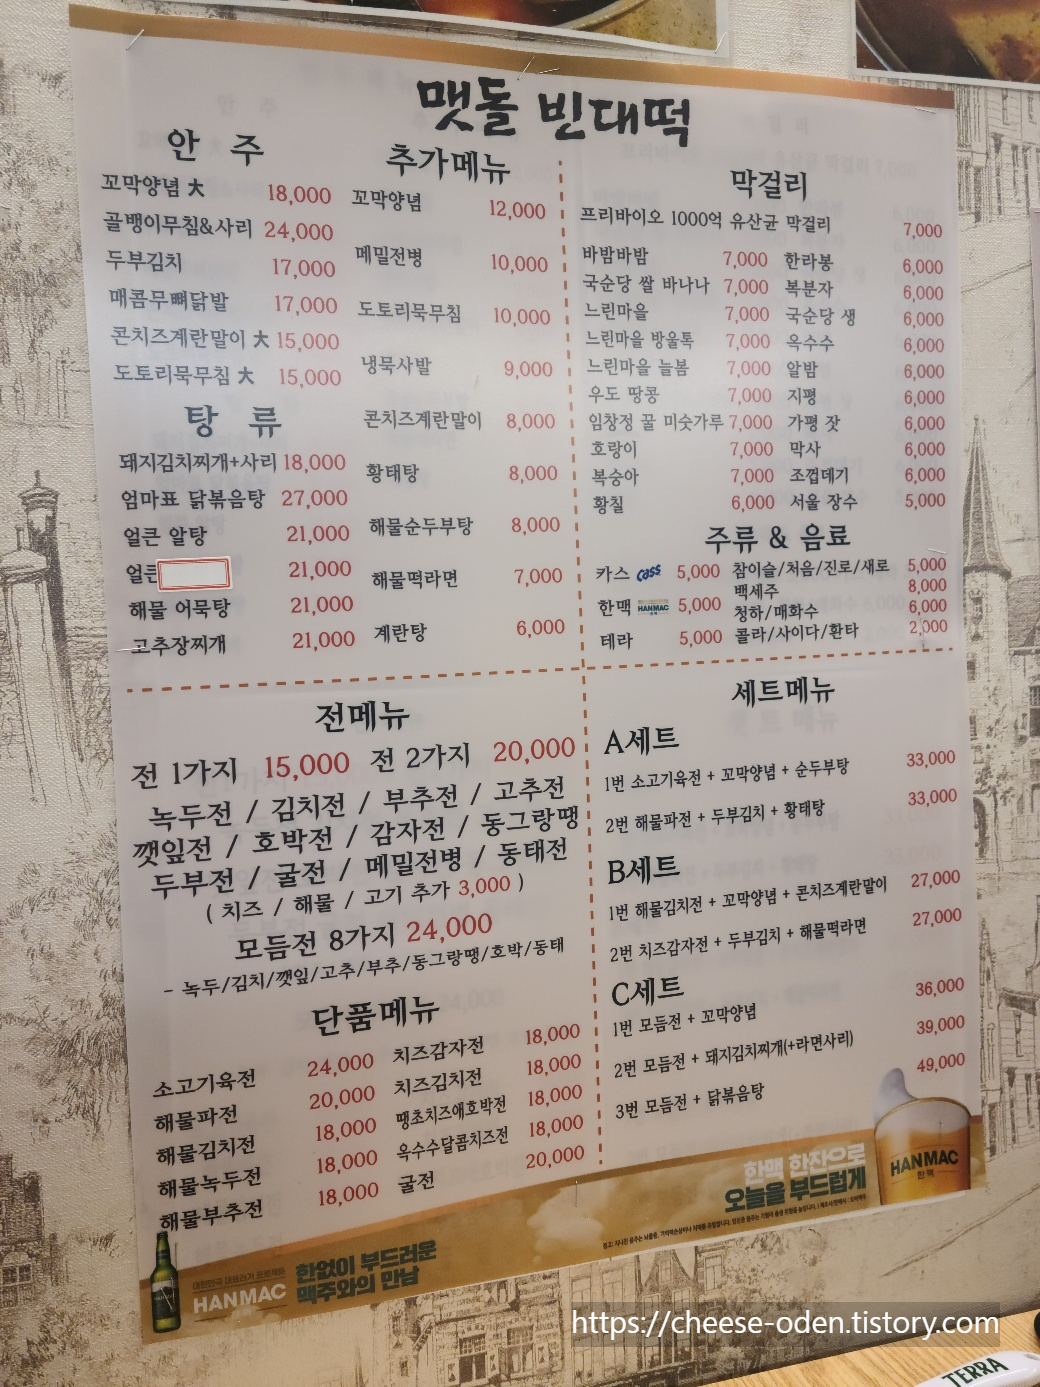 맷돌 빈대떡
안 주
꼬막양념 大 18,000
골뱅이무침&사리 24,000
두부김치 17,000
매콤무뼈닭발 17,000
콘치즈계란말이 大 15,000
도토리묵무침 大 15,000
탕 류
돼지김치찌개+사리 18,000
엄마표 닭볶음탕 27,000
얼큰 알탕 21,000
얼큰 21,000
해물 어묵탕 21,000
고추장찌개 21,000
추가메뉴
꼬막양념 12,000
메밀전병 10,000
도토리묵무침 10,000
냉묵사발 9,000
콘치즈계란말이 8,000
황태탕 8,000
해물순두부탕 8,000
해물떡라면 7,000
계란탕 6,000
막걸리
프리바이오 1000억 유산균 막걸리 7,000
바밤바밤 7,000 한라봉 6,000
국순당 쌀 바나나 7,000 복분자 6,000
느린마을 7,000 국순당 생 6,000
느린마을 방울톡 7,000 옥수수 6,000
느린마을 늘봄 7,000 알밤 6,000
우도 땅콩 7,000 지평 6,000
임창정 꿀 미숫가루 7,000 가평 잣 6,000
호랑이 7,000 막사 6,000
복숭아 7,000 조껍데기 6,000
황칠 6,000 서울 장수 5,000
주류 & 음료
카스 Cass 5,000 참이슬/처음/진로/새로 5,000
백세주 8,000
한맥 HANMAC 5,000 청하/매화수 6,000
테라 5,000 콜라/사이다/환타 2,000
전메뉴
전 1가지 15,000 전 2가지 20,000
녹두전 / 김치전 / 부추전 / 고추전
깻잎전 / 호박전 / 감자전 / 동그랑땡
두부전 / 굴전 / 메밀전병 / 동태전
( 치즈 / 해물 / 고기 추가 3,000 )
모듬전 8가지 24,000
- 녹두/김치/깻잎/고추/부추/동그랑땡/호박/동태
단품메뉴
소고기육전 24,000 치즈감자전 18,000
해물파전 20,000 치즈김치전 18,000
해물김치전 18,000 땡초치즈애호박전 18,000
해물녹두전 18,000 옥수수달콤치즈전 18,000
해물부추전 18,000 굴전 20,000
세트메뉴
A세트
1번 소고기육전 + 꼬막양념 + 순두부탕 33,000
2번 해물파전 + 두부김치 + 황태탕 33,000
B세트
1번 해물김치전 + 꼬막양념 + 콘치즈계란말이 27,000
2번 치즈감자전 + 두부김치 + 해물떡라면 27,000
C세트
1번 모듬전 + 꼬막양념 36,000
2번 모듬전 + 돼지김치찌개(+라면사리) 39,000
3번 모듬전 + 닭볶음탕 49,000
한맥 한잔으로
오늘을 부드럽게
HANMAC
한맥
HANMAC
한없이 부드러운
맥주와의 만남
https://cheese-oden.tistory.com
TERRA